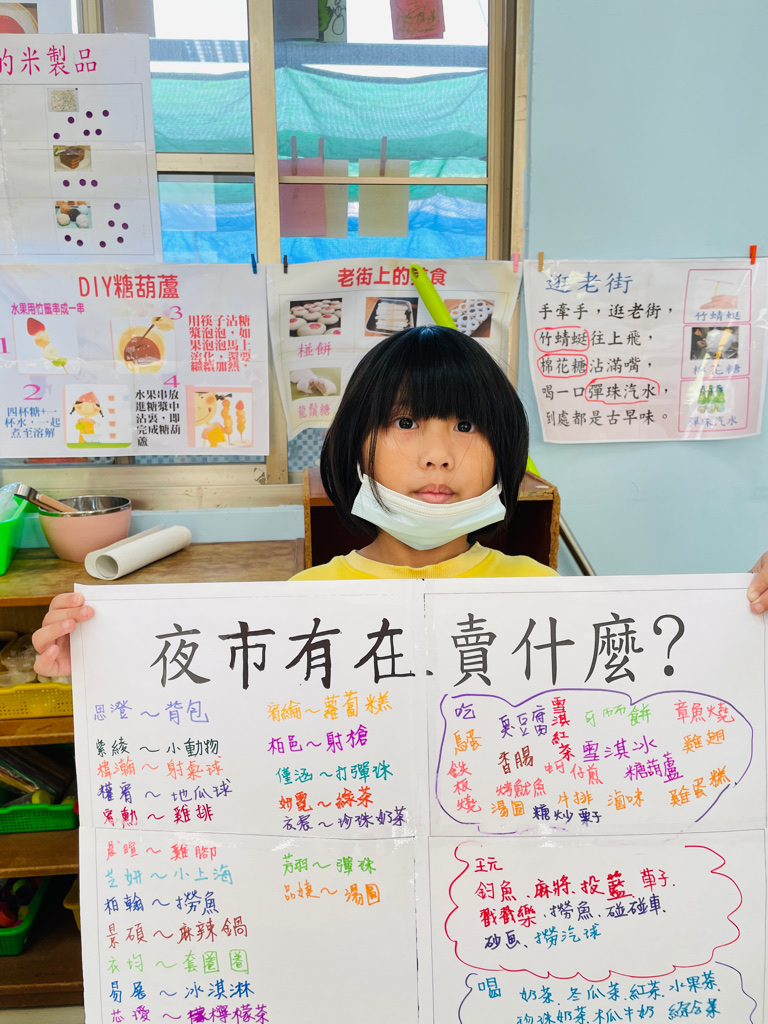 的米製品
DIY糖葫蘆
水果用竹籤串成一串
1
2
四杯糖+一
杯水，一起
煮至溶解
3
用筷子沾糖
漿泡泡，如
果泡泡馬上
溶化，還要
繼續加熱。
4
水果串放
進糖漿中
沾裹，即
完成糖葫
蘆
老街上的美食
椪餅
龍鬚糖
逛老街
手牽手，逛老街，
竹蜻蜓往上飛，
棉花糖沾滿嘴，
喝一口彈珠汽水，
到處都是古早味。
竹蜻蜓
棉花糖
彈珠汽水
夜市有在賣什麼？
思澄～背包
紫綾～小動物
～射氣球
～地瓜球
勳～雞排
晨暄～雞腳
芝妍～小上海
柏翰～撈魚
景碩～麻辣鍋
衣均～套圈圈
易展～冰淇淋
芯瀅～檸檬茶
～蘿蔔糕
栢邑～射槍
僅涵～打彈珠
妙霓～綠茶
宸～珍珠奶茶
芳羽～彈珠
品婕～湯圓
吃
臭豆腐
雪淇
紅茶
餅
章魚燒
香腸
雪淇冰
雞翅
鐵板燒
蚵仔煎
糖葫蘆
烤魷魚
湯圓
牛排
滷味
雞蛋糕
糖炒栗子
玩
釣魚、麻將、投籃、車子、
戳戳樂、撈魚、碰碰車、
砂画、撈汽球
喝
奶茶、冬瓜茶、紅茶、水果茶、
珍珠奶茶、木瓜牛奶 綜合茶